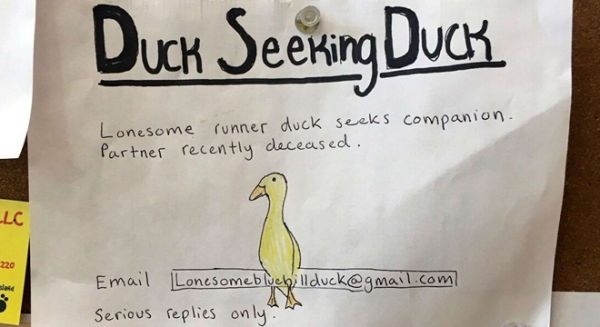 Duck Seeking Duck
Lonesome runner duck seeks companion.
Partner recently deceased.
Email Lonesomebluehillduck@gmail.com
Serious replies only.
LLC
220